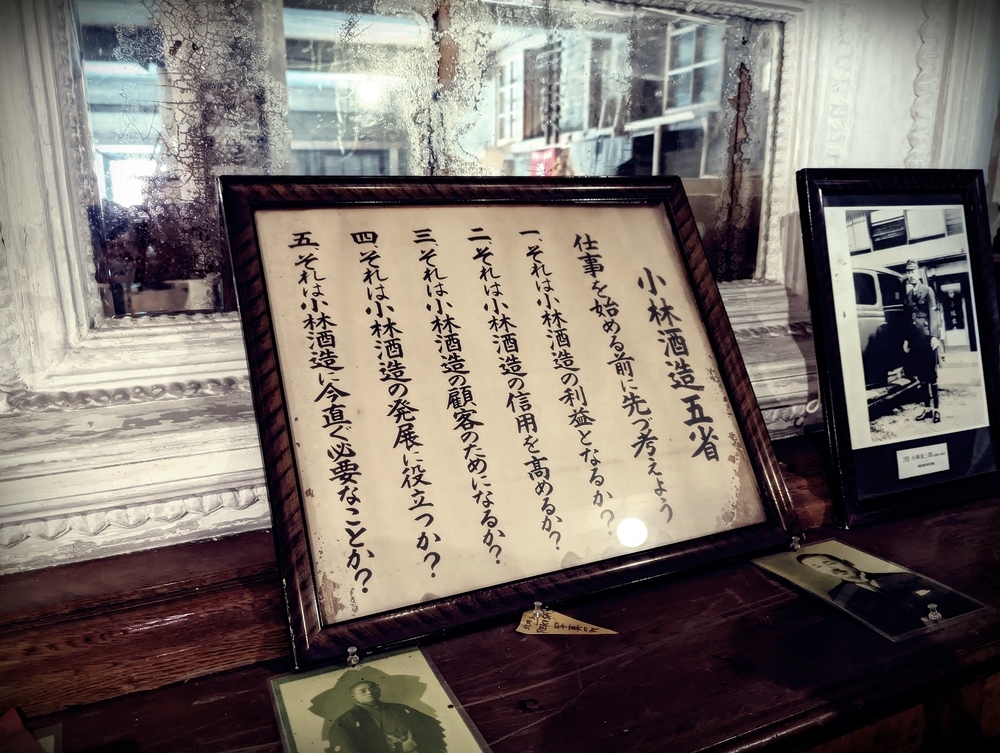 小林酒造五省
仕事を始める前に先づ考えよう
一、それは小林酒造の利益となるか？
二、それは小林酒造の信用を高めるか？
三、それは小林酒造の顧客のためになるか？
四、それは小林酒造の発展に役立つか？
五、それは小林酒造に今直ぐ必要なことか？